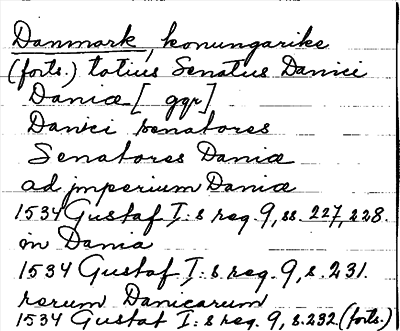 Danmark, konungarike
(forts.) totius Senatus Danici
Daniæ [ ggr]
Danici senatores
Senatores Daniæ
ad imperium Daniæ
1534 Gustaf I:s reg. 9, ss. 227, 228.
in Dania
1534 Gustaf I:s reg. 9, s. 231.
rerum Danicarum
1534 Gustaf I:s reg. 9, s. 232. (forts.)